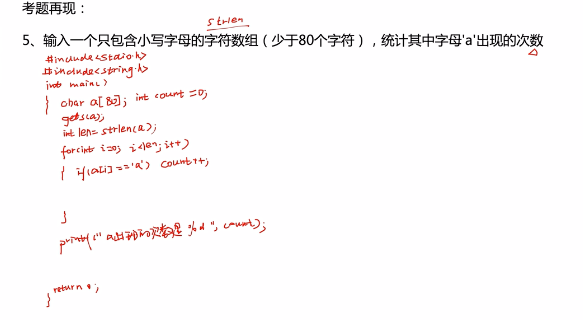 考题再现：
strlen
5、输入一个只包含小写字母的字符数组（少于80个字符），统计其中字母'a'出现的次数
#include<stdio.h>
#include<string.h>
int main()
{ char a[80]; int count=0;
gets(a);
int len=strlen(a);
for(int i=0; i<len; i++)
{ if(a[i]=='a') count++;
}
printf("a出现的次数是%d", count);
return 0;
}